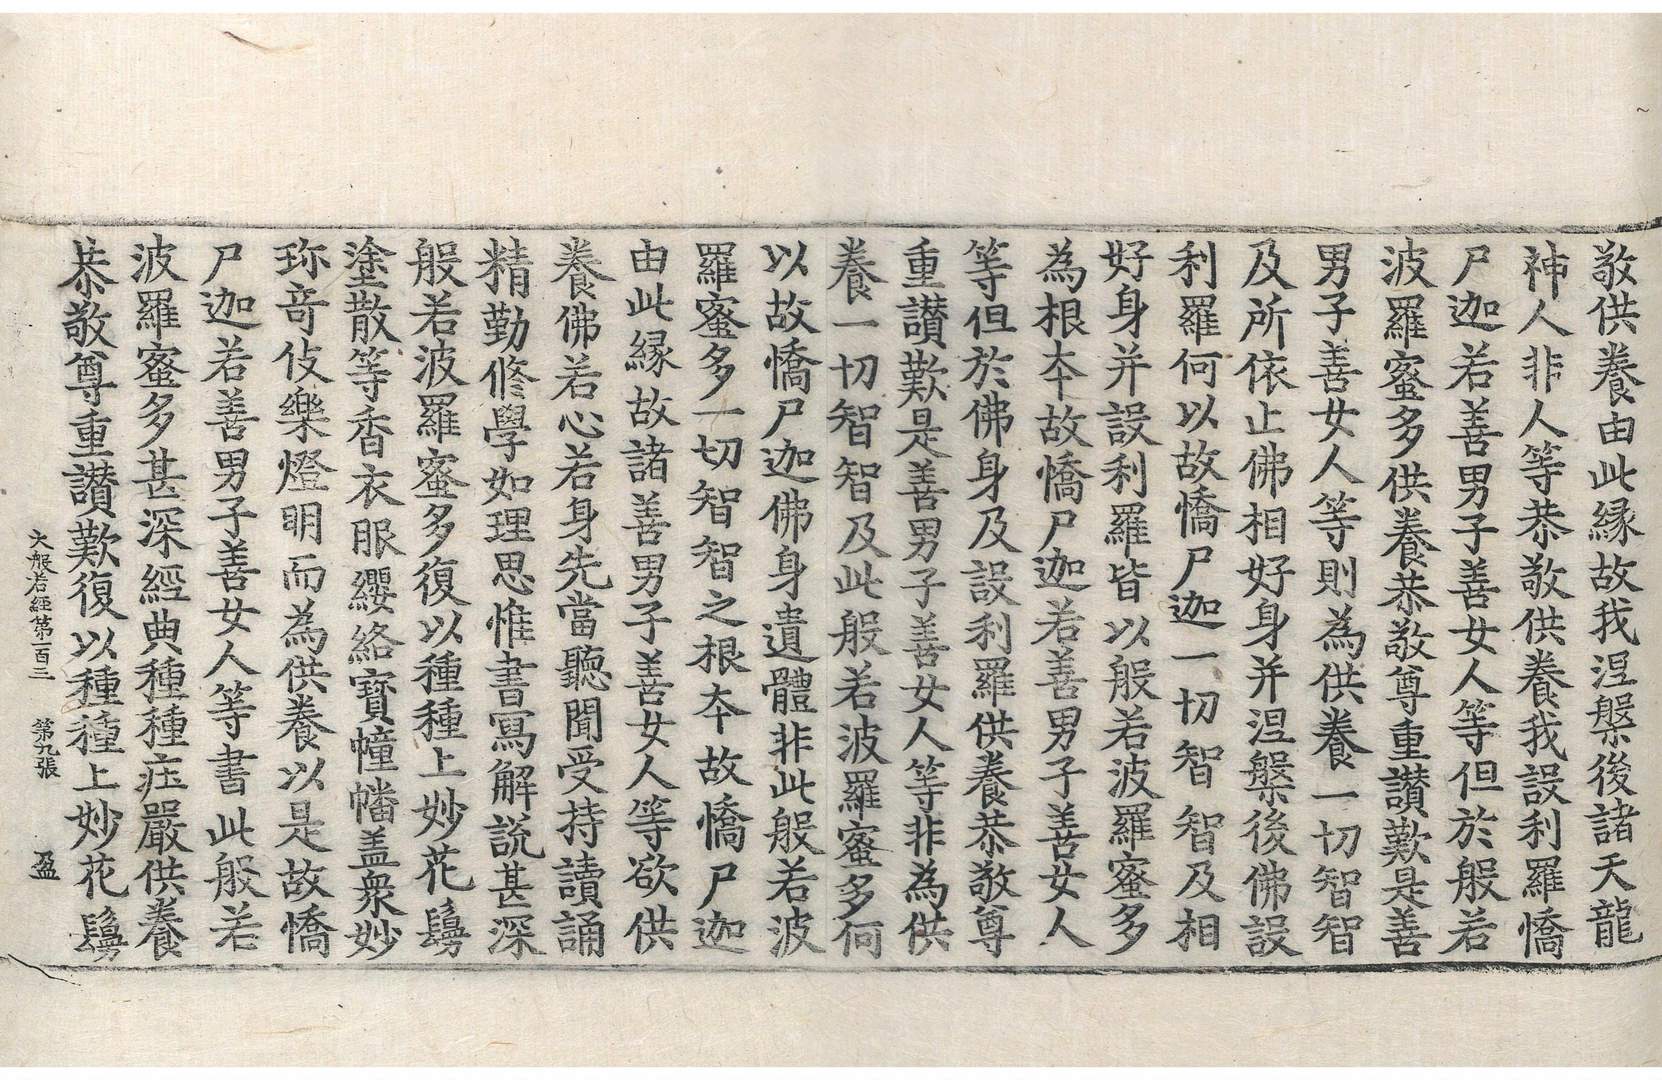 敬供養由此縁故我涅槃後諸天龍
神人非人等恭敬供養我設利羅憍
尸迦若善男子善女人等但於般若
波羅蜜多供養恭敬尊重讃歎是善
男子善女人等則為供養一切智智
及所依止佛相好身并涅槃後佛設
利羅何以故憍尸迦一切智智及相
好身并設利羅皆以般若波羅蜜多
為根本故憍尸迦若善男子善女人
等但於佛身及設利羅供養恭敬尊
重讃歎是善男子善女人等非為供
養一切智智及此般若波羅蜜多何
以故憍尸迦佛身遺體非此般若波
羅蜜多一切智智之根本故憍尸迦
由此縁故諸善男子善女人等欲供
養佛若心若身先當聽聞受持讀誦
精勤修學如理思惟書寫解説甚深
般若波羅蜜多復以種種上妙花鬘
塗散等香衣服纓絡寳幢幡盖衆妙
珎竒伎樂燈明而為供養以是故憍
尸迦若善男子善女人等書此般若
波羅蜜多甚深經典種種庄嚴供養
恭敬尊重讃歎復以種種上妙花鬘
大般若經第一百三 第九張 盈